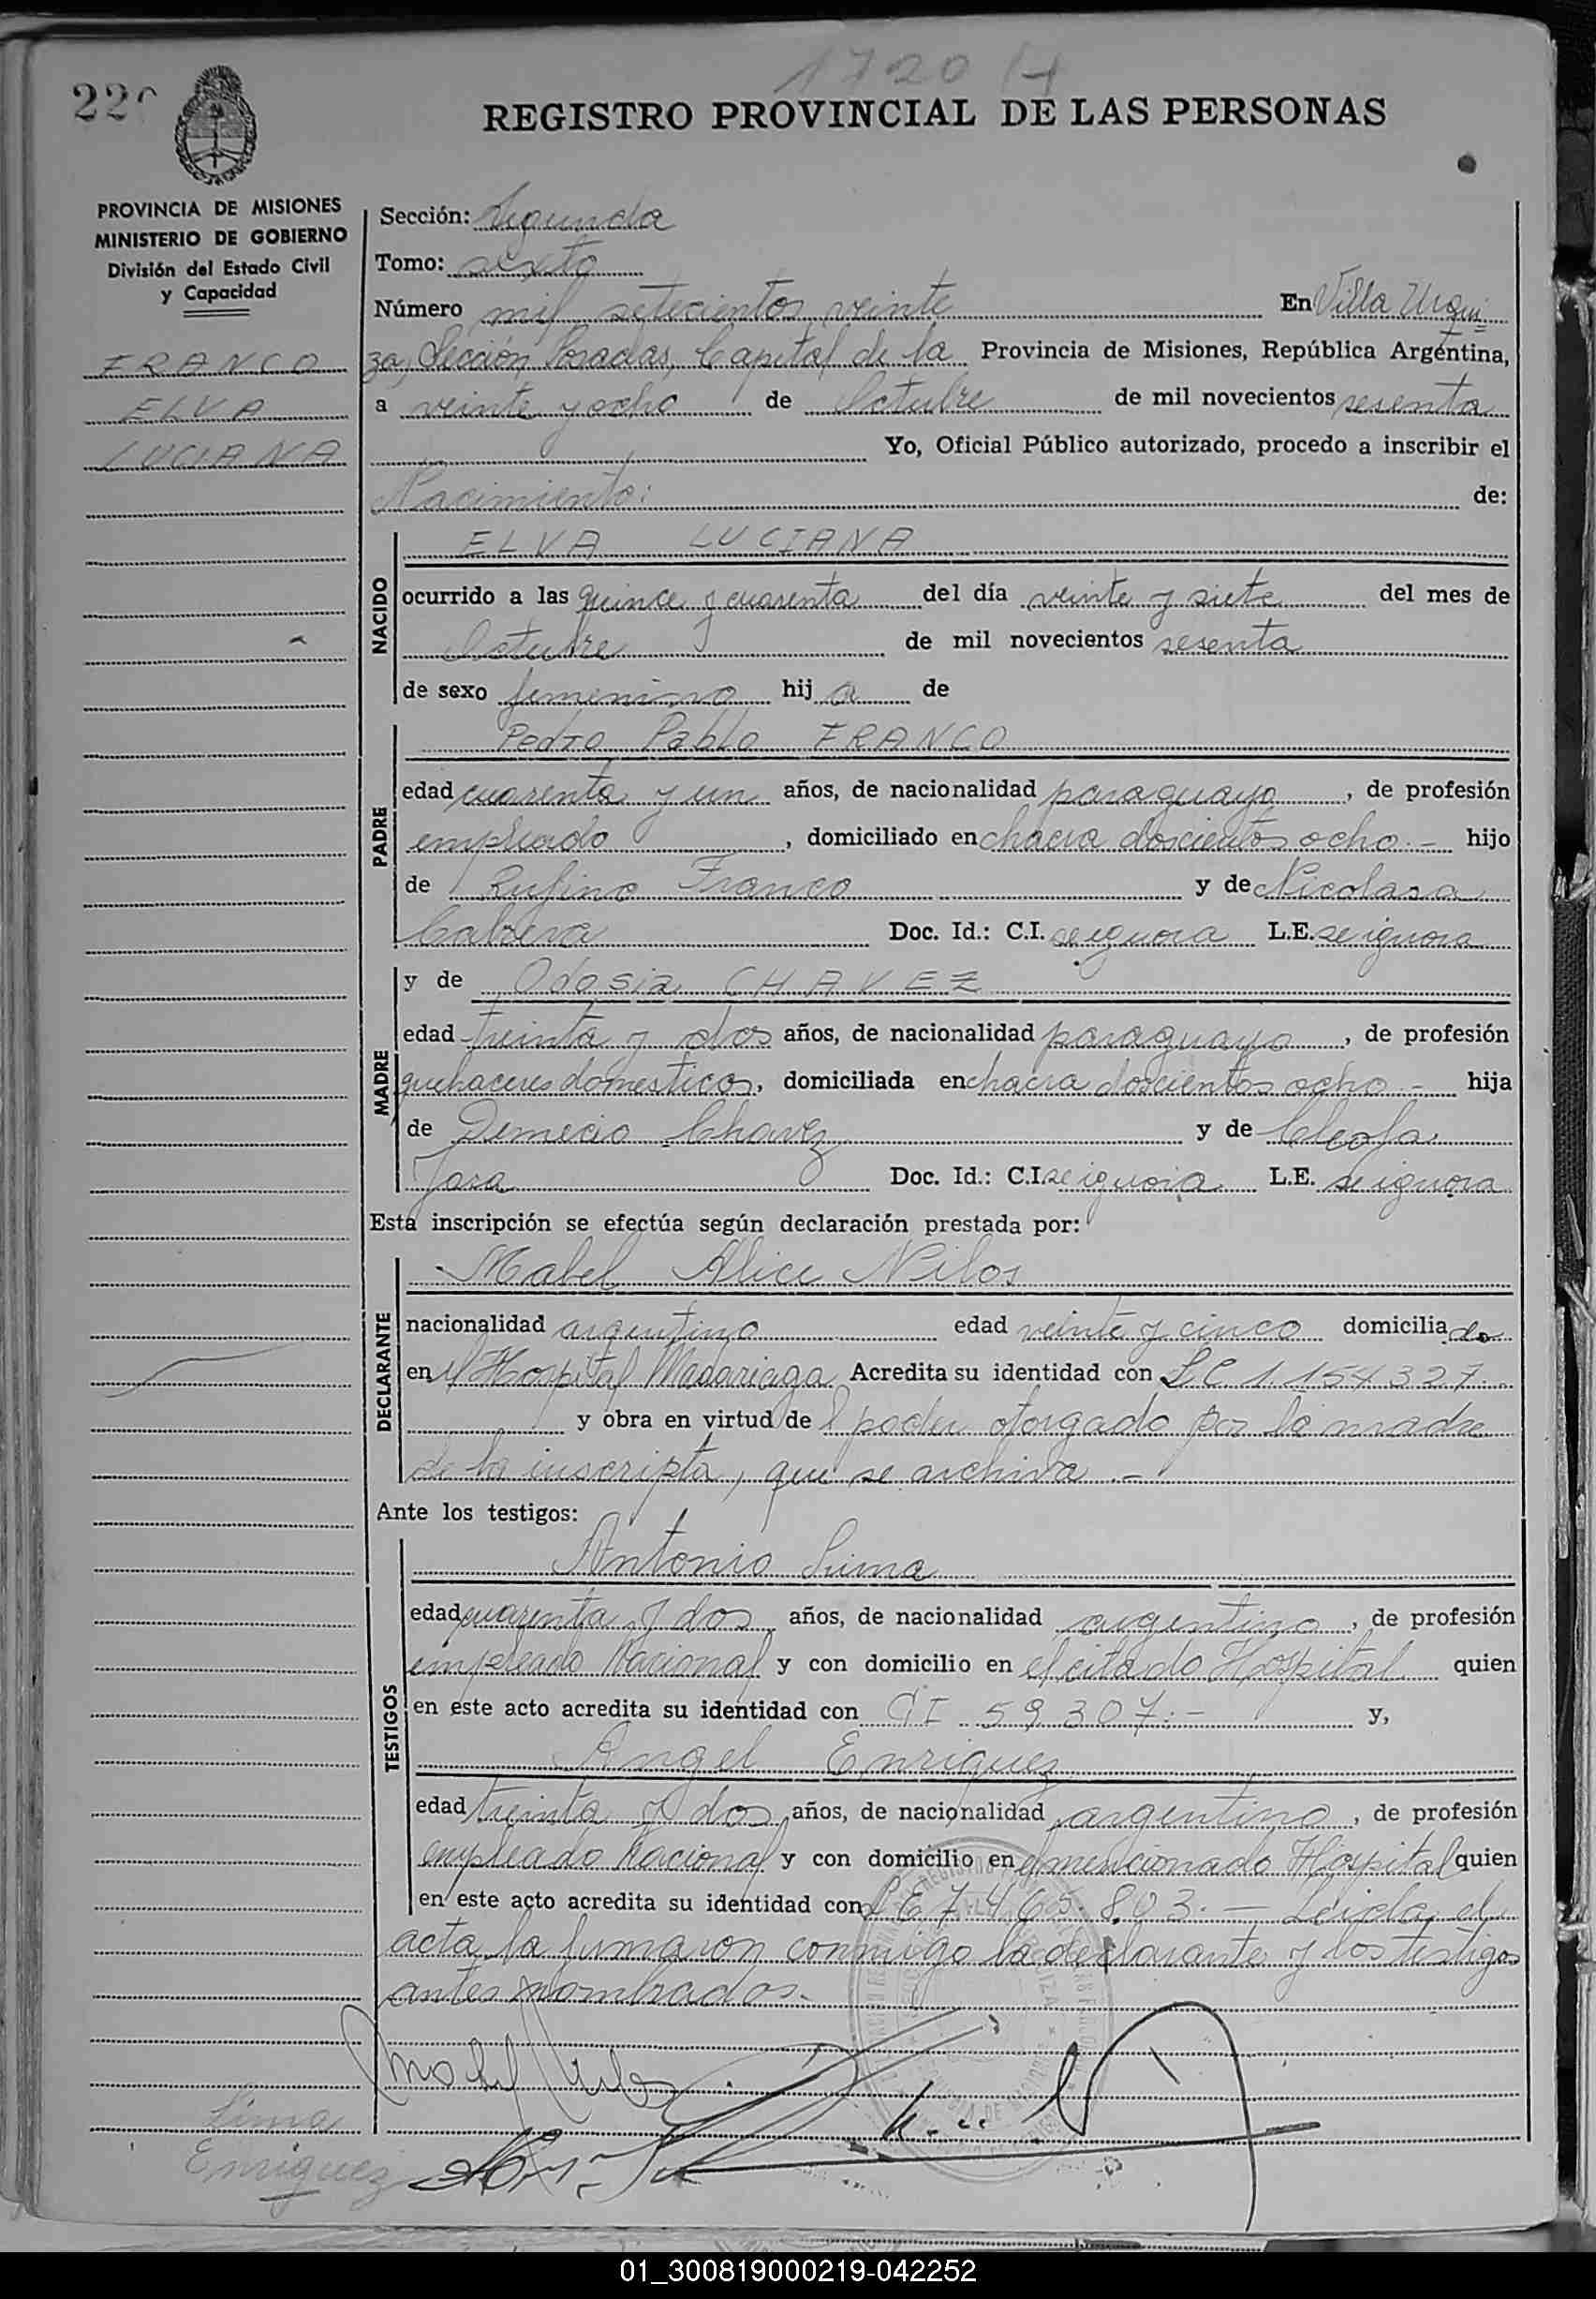 1720 H
22
REGISTRO PROVINCIAL DE LAS PERSONAS
PROVINCIA DE MISIONES
MINISTERIO DE GOBIERNO
División del Estado Civil
y Capacidad
FRANCO
ELVA
LUCIANA
Sección: Segunda
Tomo: sexto
Número mil setecientos veinte En Villa Urqui=
za, Sección Posadas, Capital de la Provincia de Misiones, República Argentina,
a veinte y ocho de Octubre de mil novecientos sesenta
Yo, Oficial Público autorizado, procedo a inscribir el
Nacimiento: de:
NACIDO
ELVA LUCIANA
ocurrido a las quince y cuarenta del día veinte y siete del mes de
Octubre de mil novecientos sesenta
de sexo femenino hij a de
PADRE
Pedro Pablo FRANCO
edad cuarenta y un años, de nacionalidad paraguayo, de profesión
empleado, domiciliado en chacra doscientos ocho.- hijo
de Rufino Franco y de Nicolasa
Cabrera Doc. Id.: C.I. se ignora L.E. se ignora
MADRE
y de Odosia CHAVEZ
edad treinta y dos años, de nacionalidad paraguaya, de profesión
quehaceres domesticos, domiciliada en chacra doscientos ocho.- hija
de Demecio Chavez y de Cleofa
Jara Doc. Id.: C.I. se ignora L.E. se ignora
Esta inscripción se efectúa según declaración prestada por:
DECLARANTE
Mabel Alice Nilos
nacionalidad argentino edad veinte y cinco domicilia do
en el Hospital Madariaga Acredita su identidad con LC 1.154.327.
y obra en virtud de l poder otorgado por la madre
de la inscripta, que se archiva.-
Ante los testigos:
TESTIGOS
Antonio Lima
edad cuarenta y dos años, de nacionalidad argentino, de profesión
empleado Nacional y con domicilio en el citado Hospital quien
en este acto acredita su identidad con CI 59.307.- y,
Angel Enriquez
edad treinta y dos años, de nacionalidad argentino, de profesión
empleado Nacional y con domicilio en el mencionado Hospital quien
en este acto acredita su identidad con LE 7.465.803.- Leida el
acta la firmaron conmigo la declarante y los testigos
antes nombrados.-
Lima
Enriquez
01_300819000219-042252